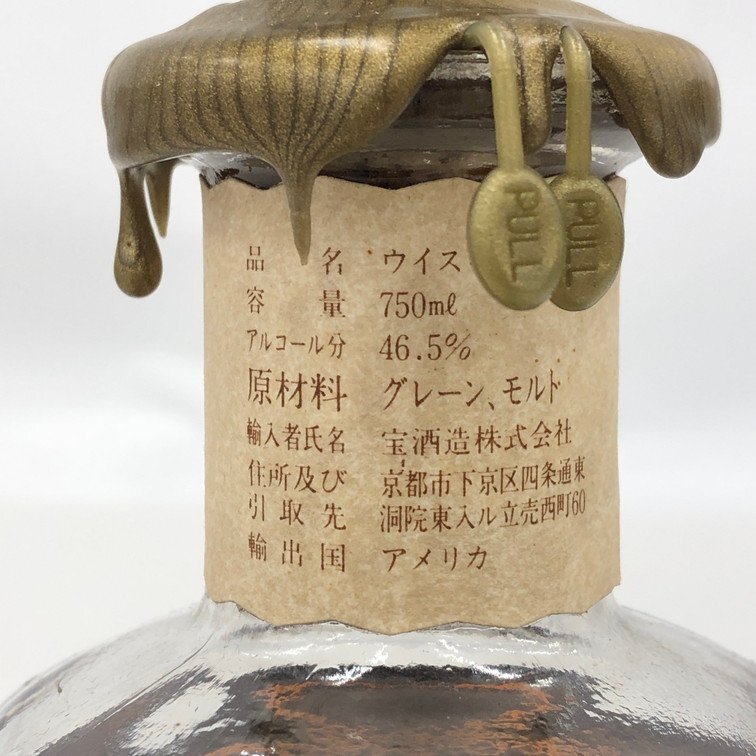 PULL
PULL
品名 ウイス
容量 750mℓ
アルコール分 46.5%
原材料 グレーン、モルト
輸入者氏名 宝酒造株式会社
住所及び 京都市下京区四条通東
引取先 洞院東入ル立売西町60
輸出国 アメリカ